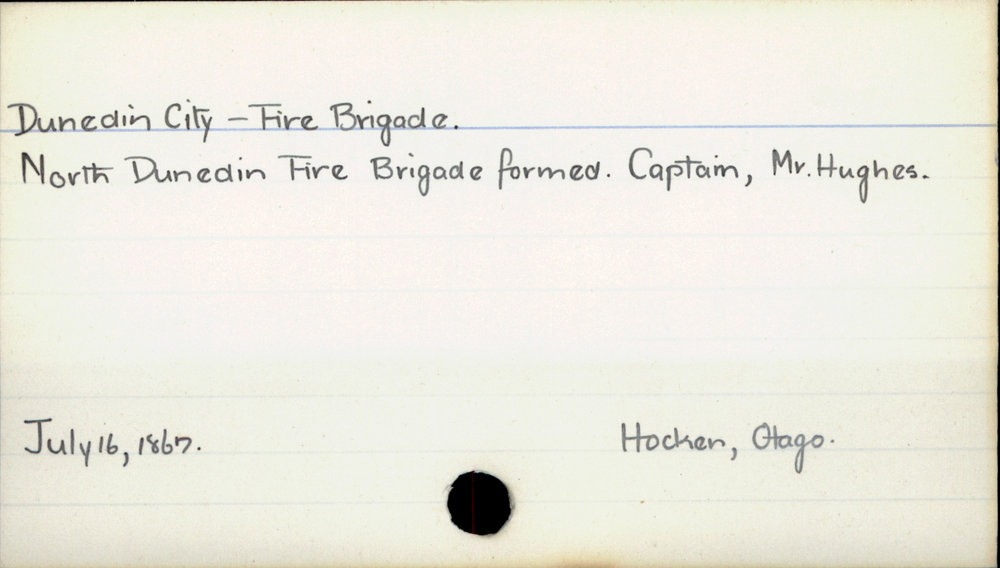 Dunedin City – Fire Brigade.
North Dunedin Fire Brigade formed. Captain, Mr. Hughes.
July 16, 1867.
Hocken, Otago.